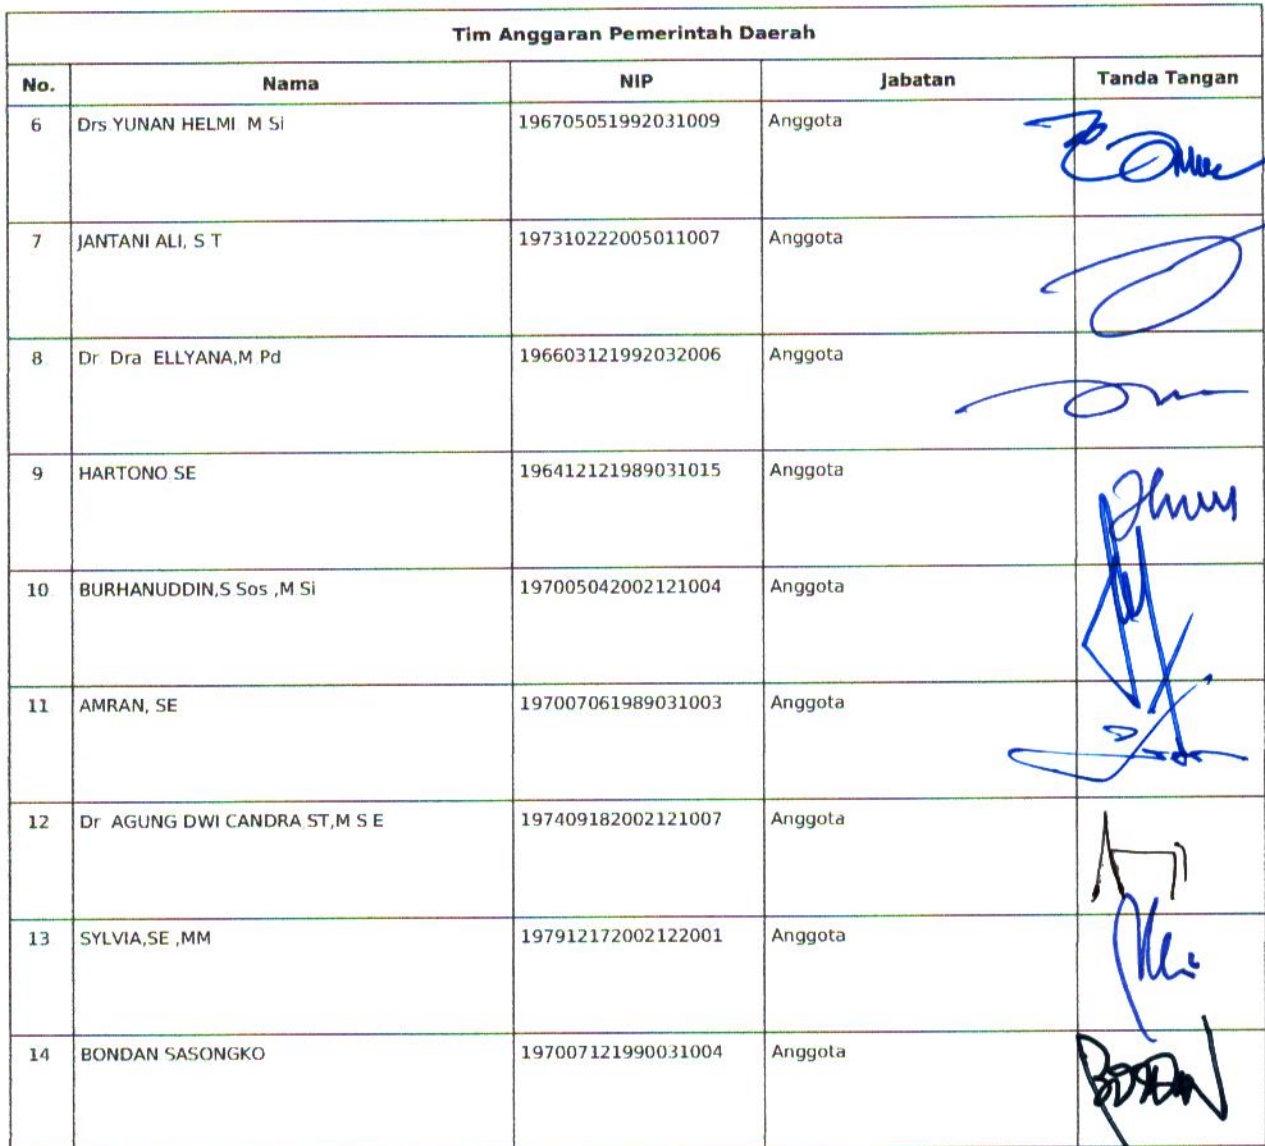 Tim Anggaran Pemerintah Daerah
No. Nama NIP Jabatan Tanda Tangan
6 Drs.YUNAN HELMI M Si 196705051992031009 Anggota
7 JANTANI ALI, S T 197310222005011007 Anggota
8 Dr Dra ELLYANA,M Pd 196603121992032006 Anggota
9 HARTONO SE 196412121989031015 Anggota
10 BURHANUDDIN,S Sos ,M Si 197005042002121004 Anggota
11 AMRAN, SE 197007061989031003 Anggota
12 Dr AGUNG DWI CANDRA,ST,M S E 197409182002121007 Anggota
13 SYLVIA,SE ,MM 197912172002122001 Anggota
14 BONDAN SASONGKO 197007121990031004 Anggota